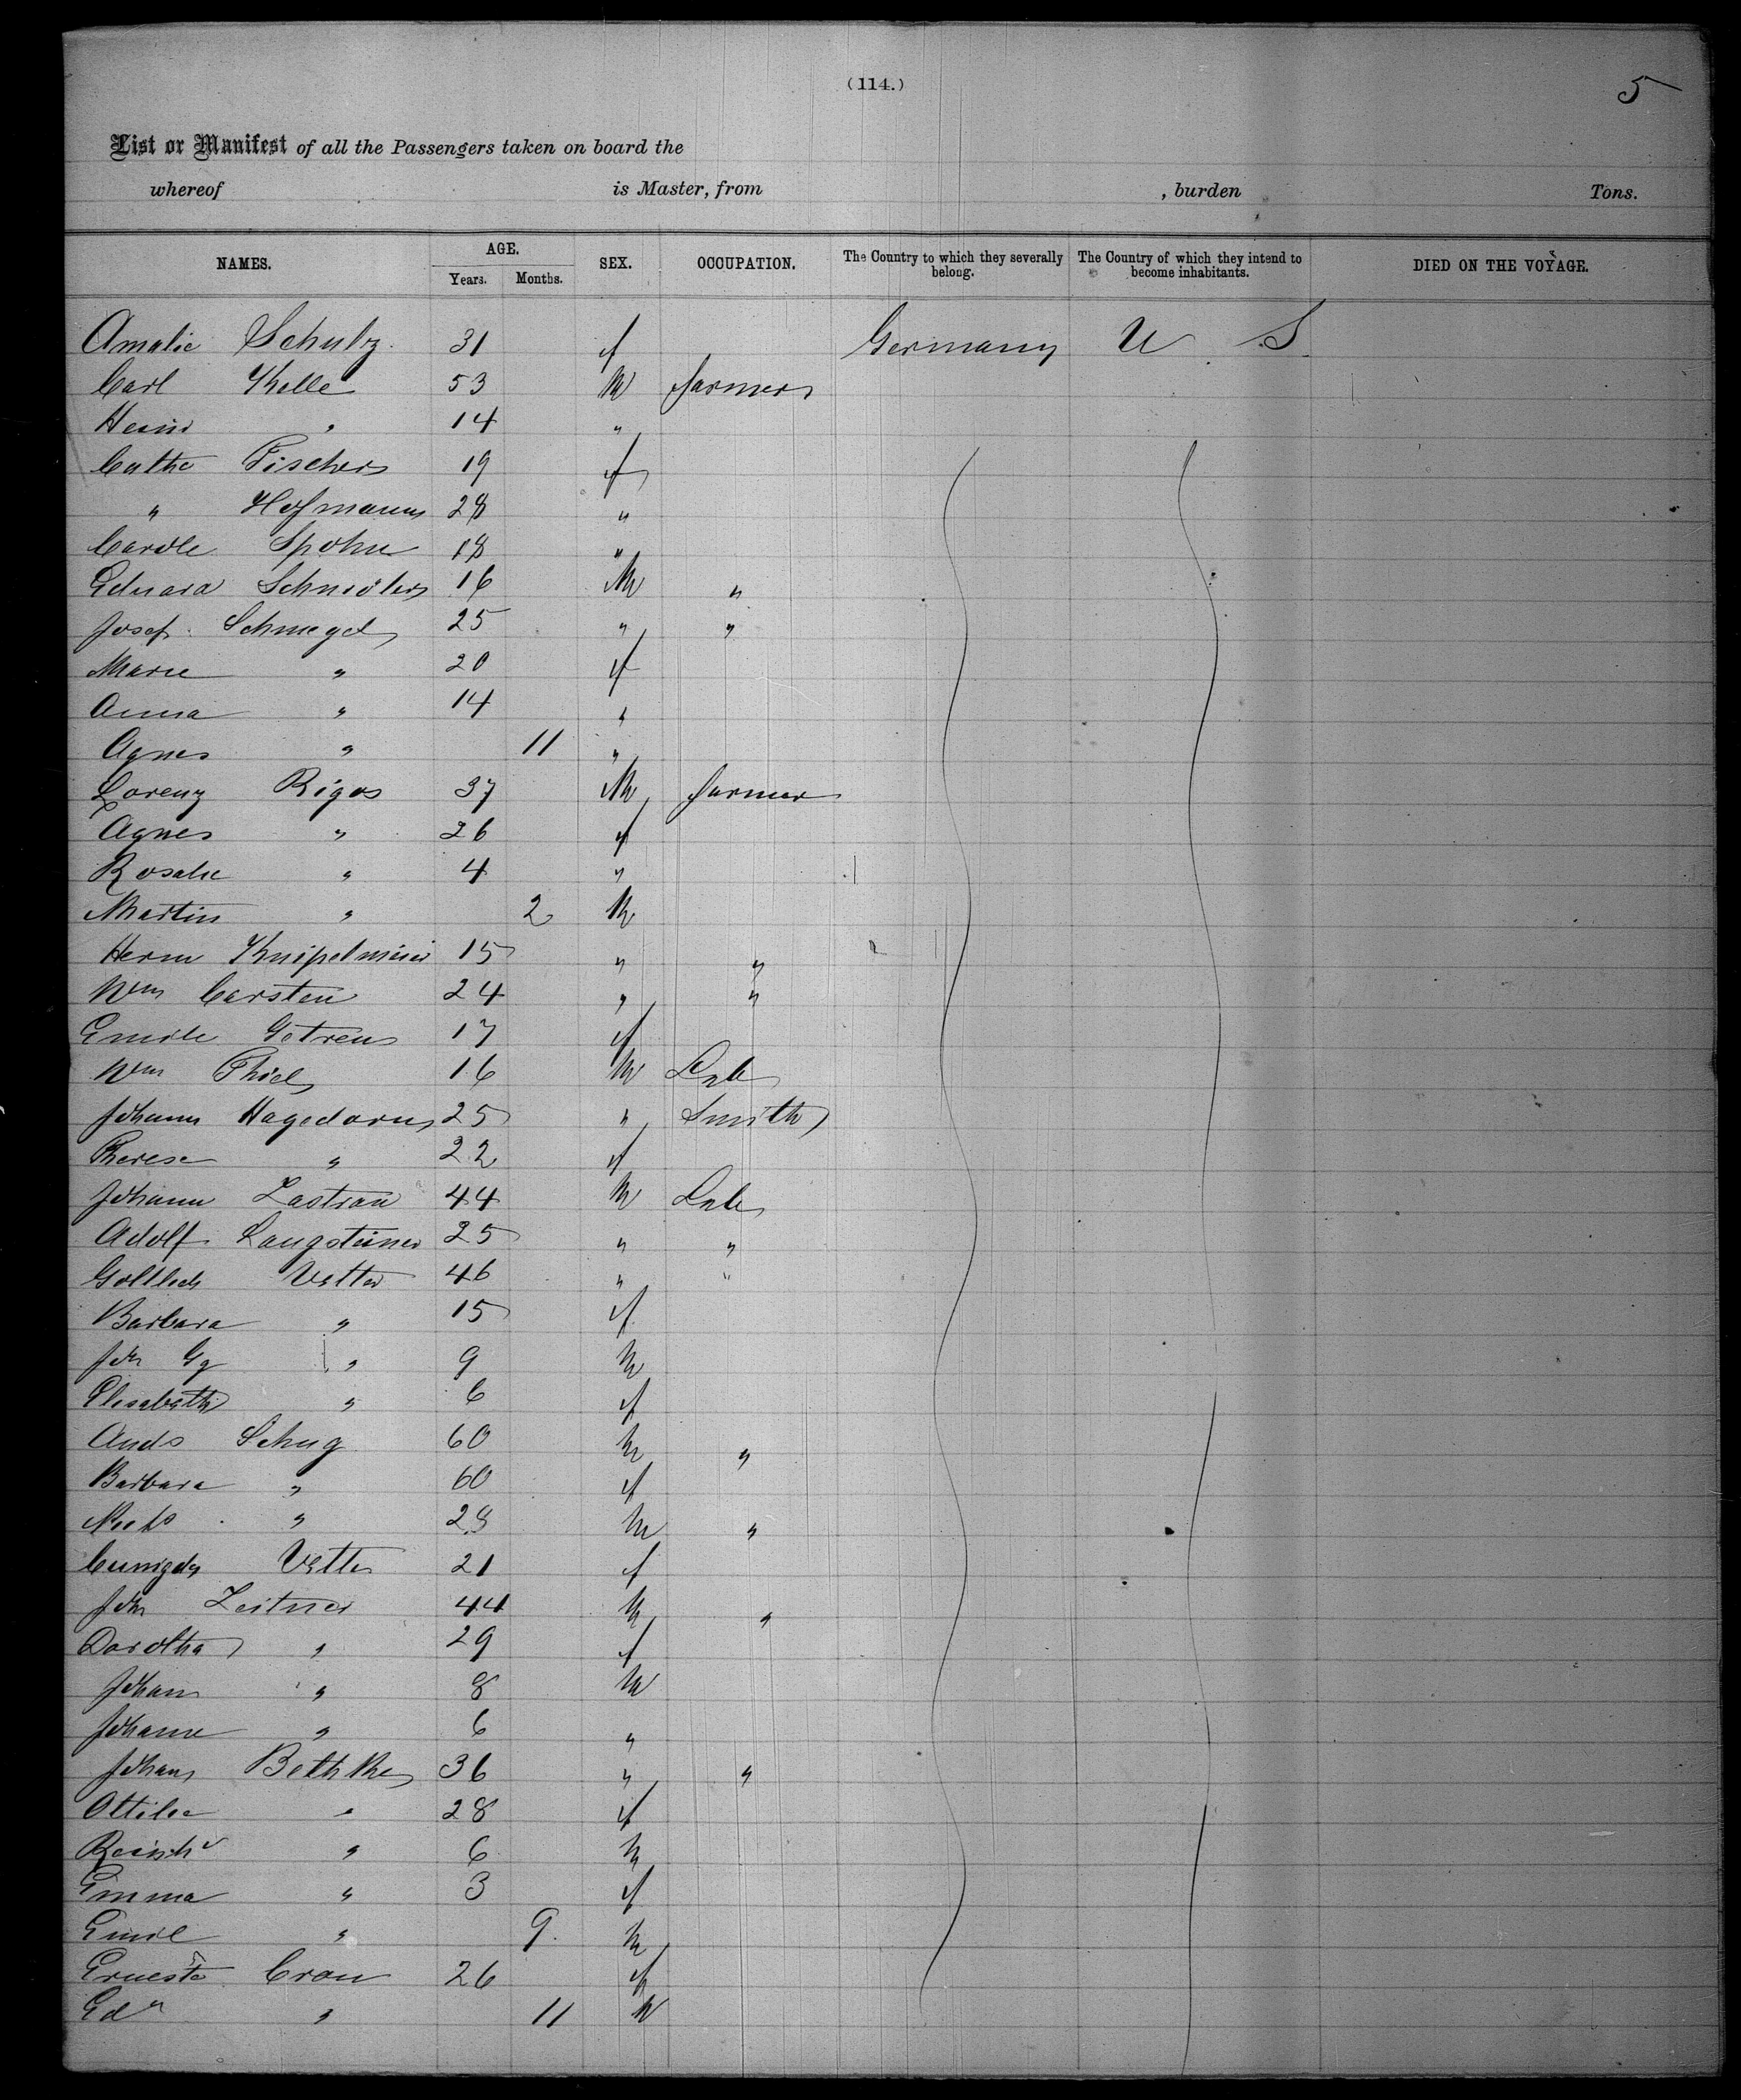 (114.)
5
List or Manifest of all the Passengers taken on board the
whereof is Master, from , burden Tons.
NAMES. AGE. Years. Months. SEX. OCCUPATION. The Country to which they severally belong. The Country of which they intend to become inhabitants. DIED ON THE VOYAGE.
Amalie Schulz 31 f Germany U S
Carl Thelle 53 M farmer
Heinr " 14 "
Cathe Fischer 19 f
" Hofmann 28 "
Carole Spohn 18 "
Eduard 16 M "
Josef Schmegel 25 " "
Marie " 20 f
Anna " 14 "
Agnes " 11 "
Lorenz Rigos 37 M farmer
Agnes " 26 f
Rosalie " 4 "
Martin " 2 M
Herm Knipelmeier 15 " "
Wm Carsten 24 " "
Emilie 17 f
Wm Thiel 16 M Lab
Johann Hagedorn 25 " Smith
Therese " 22 f
Johann Zastrau 44 M Lab
Adolf Langsteiner 25 " "
Gottlieb Vetter 46 " "
Barbara " 15 f
Joh Gg " 9 M
Elisabeth " 6 f
Andr Schug 60 M "
Barbara " 60 f
" 28 M "
Cunigde Vetter 21 f
Joh Zeitner 44 M "
Dorothea " 29 f
Johann " 8 M
Johann " 6 "
Johann Bethke 36 " "
Ottilie " 28 f
Reinhd " 6 M
Emma " 3 f
Emil " 9 M
Erneste Crau 26 f
Edu " 11 M